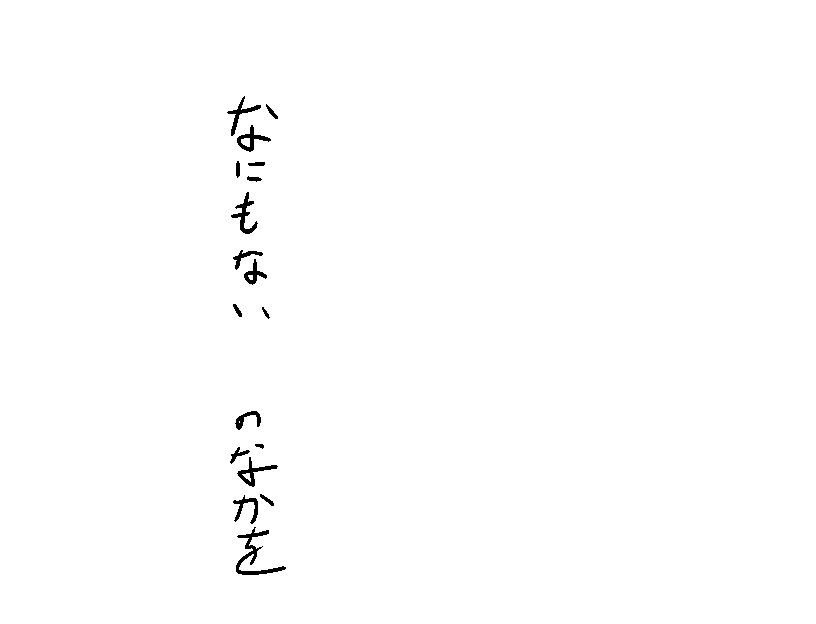 なにもない　のなかを